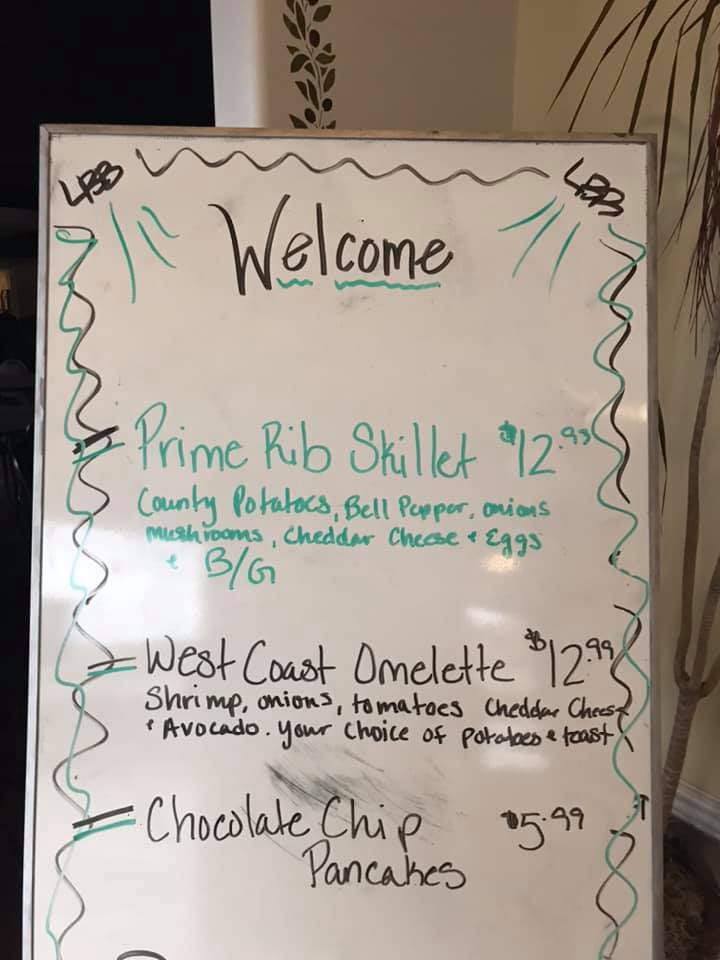 LBB LBB
Welcome
Prime Rib Skillet $12.99
County Potatoes, Bell Pepper, onions
mushrooms, Cheddar Cheese & Eggs
& B/G
West Coast Omelette $12.99
Shrimp, onions, tomatoes Cheddar Cheese
& Avocado. your choice of potatoes & toast
Chocolate Chip $5.99
Pancakes